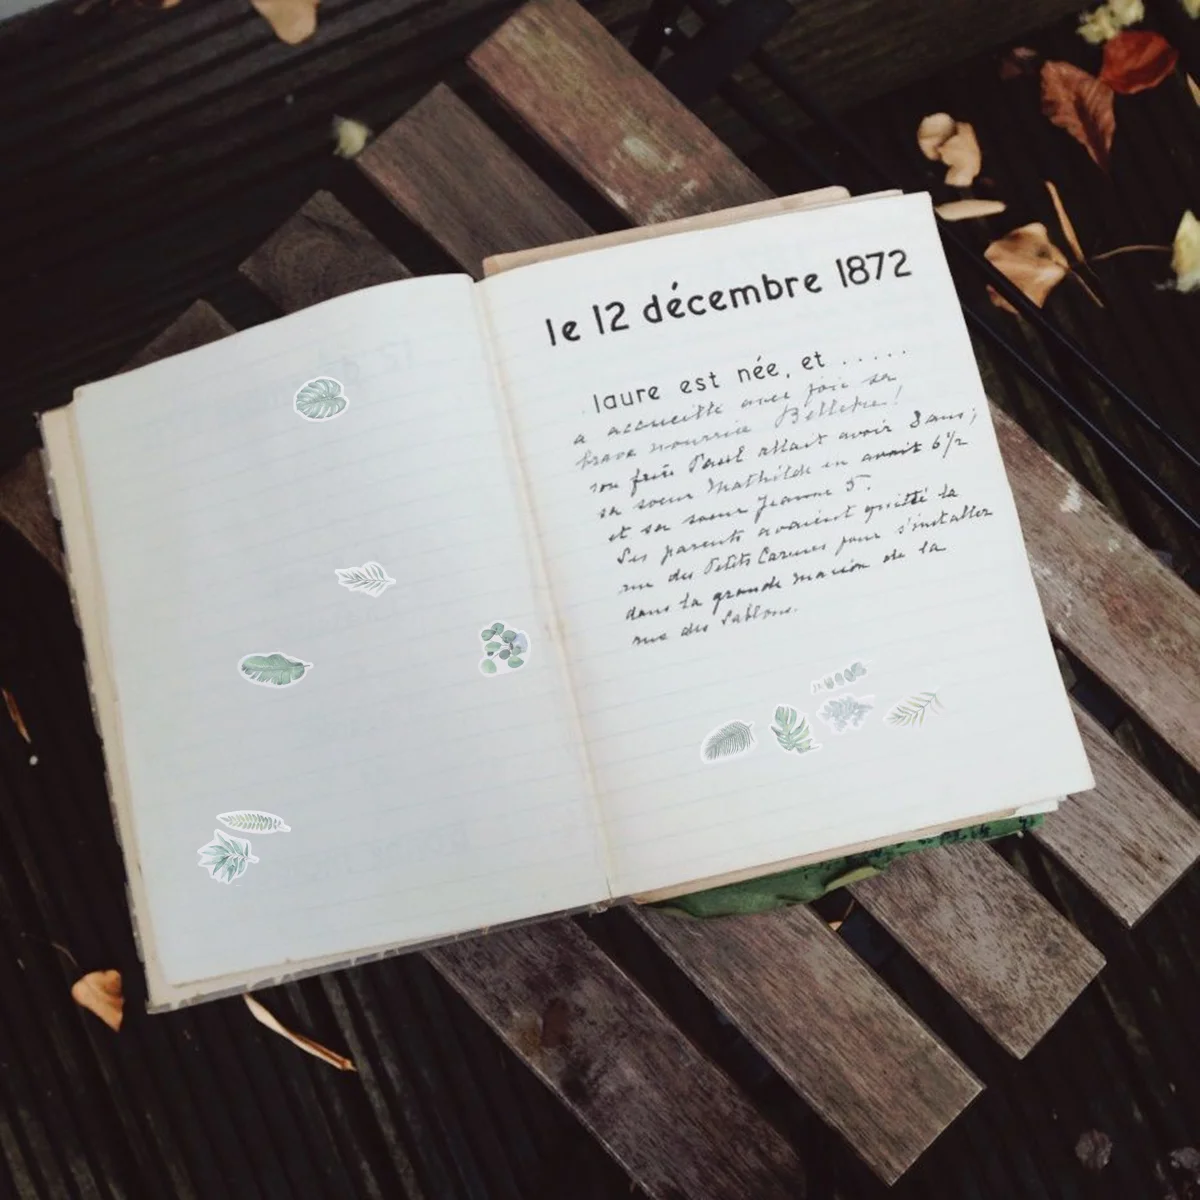 le 12 décembre 1872
laure est née, et .....
a accueilli avec joie sa
brave nourrice
son frère Paul allait avoir 8 ans;
sa soeur Mathilde en avait 6 1/2
et sa soeur Jeanne 5.
Ses parents avaient quitté la
rue des Petits Carmes pour s'installer
dans la grande maison de la
rue des Sablons.